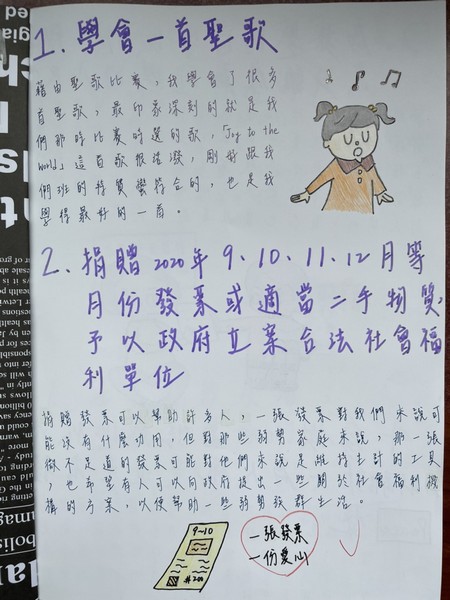 1. 學會一首聖歌
藉由聖歌比賽，我學會了很多
首聖歌，最印象深刻的就是我
們那時比賽的選的歌，「Joy to the
world」這首歌很活潑，剛好跟我
們班的特質蠻符合的，也是我
學得最好的一首。
2. 捐贈2020年9、10、11、12月等
月份發票或適當二手物資，
予以政府立案合法社會福
利單位
捐贈發票可以幫助許多人，一張發票對我們來說可
能沒有什麼功用，但對那些弱勢家庭來說，那一張
微不足道的發票可能對他們來說是維持生計的工具
，也希望有人可以向政府提出一些關於社會福利機
構的方案，以便幫助一些弱勢族群生活。
9-10
#200
一張發票
一份愛心